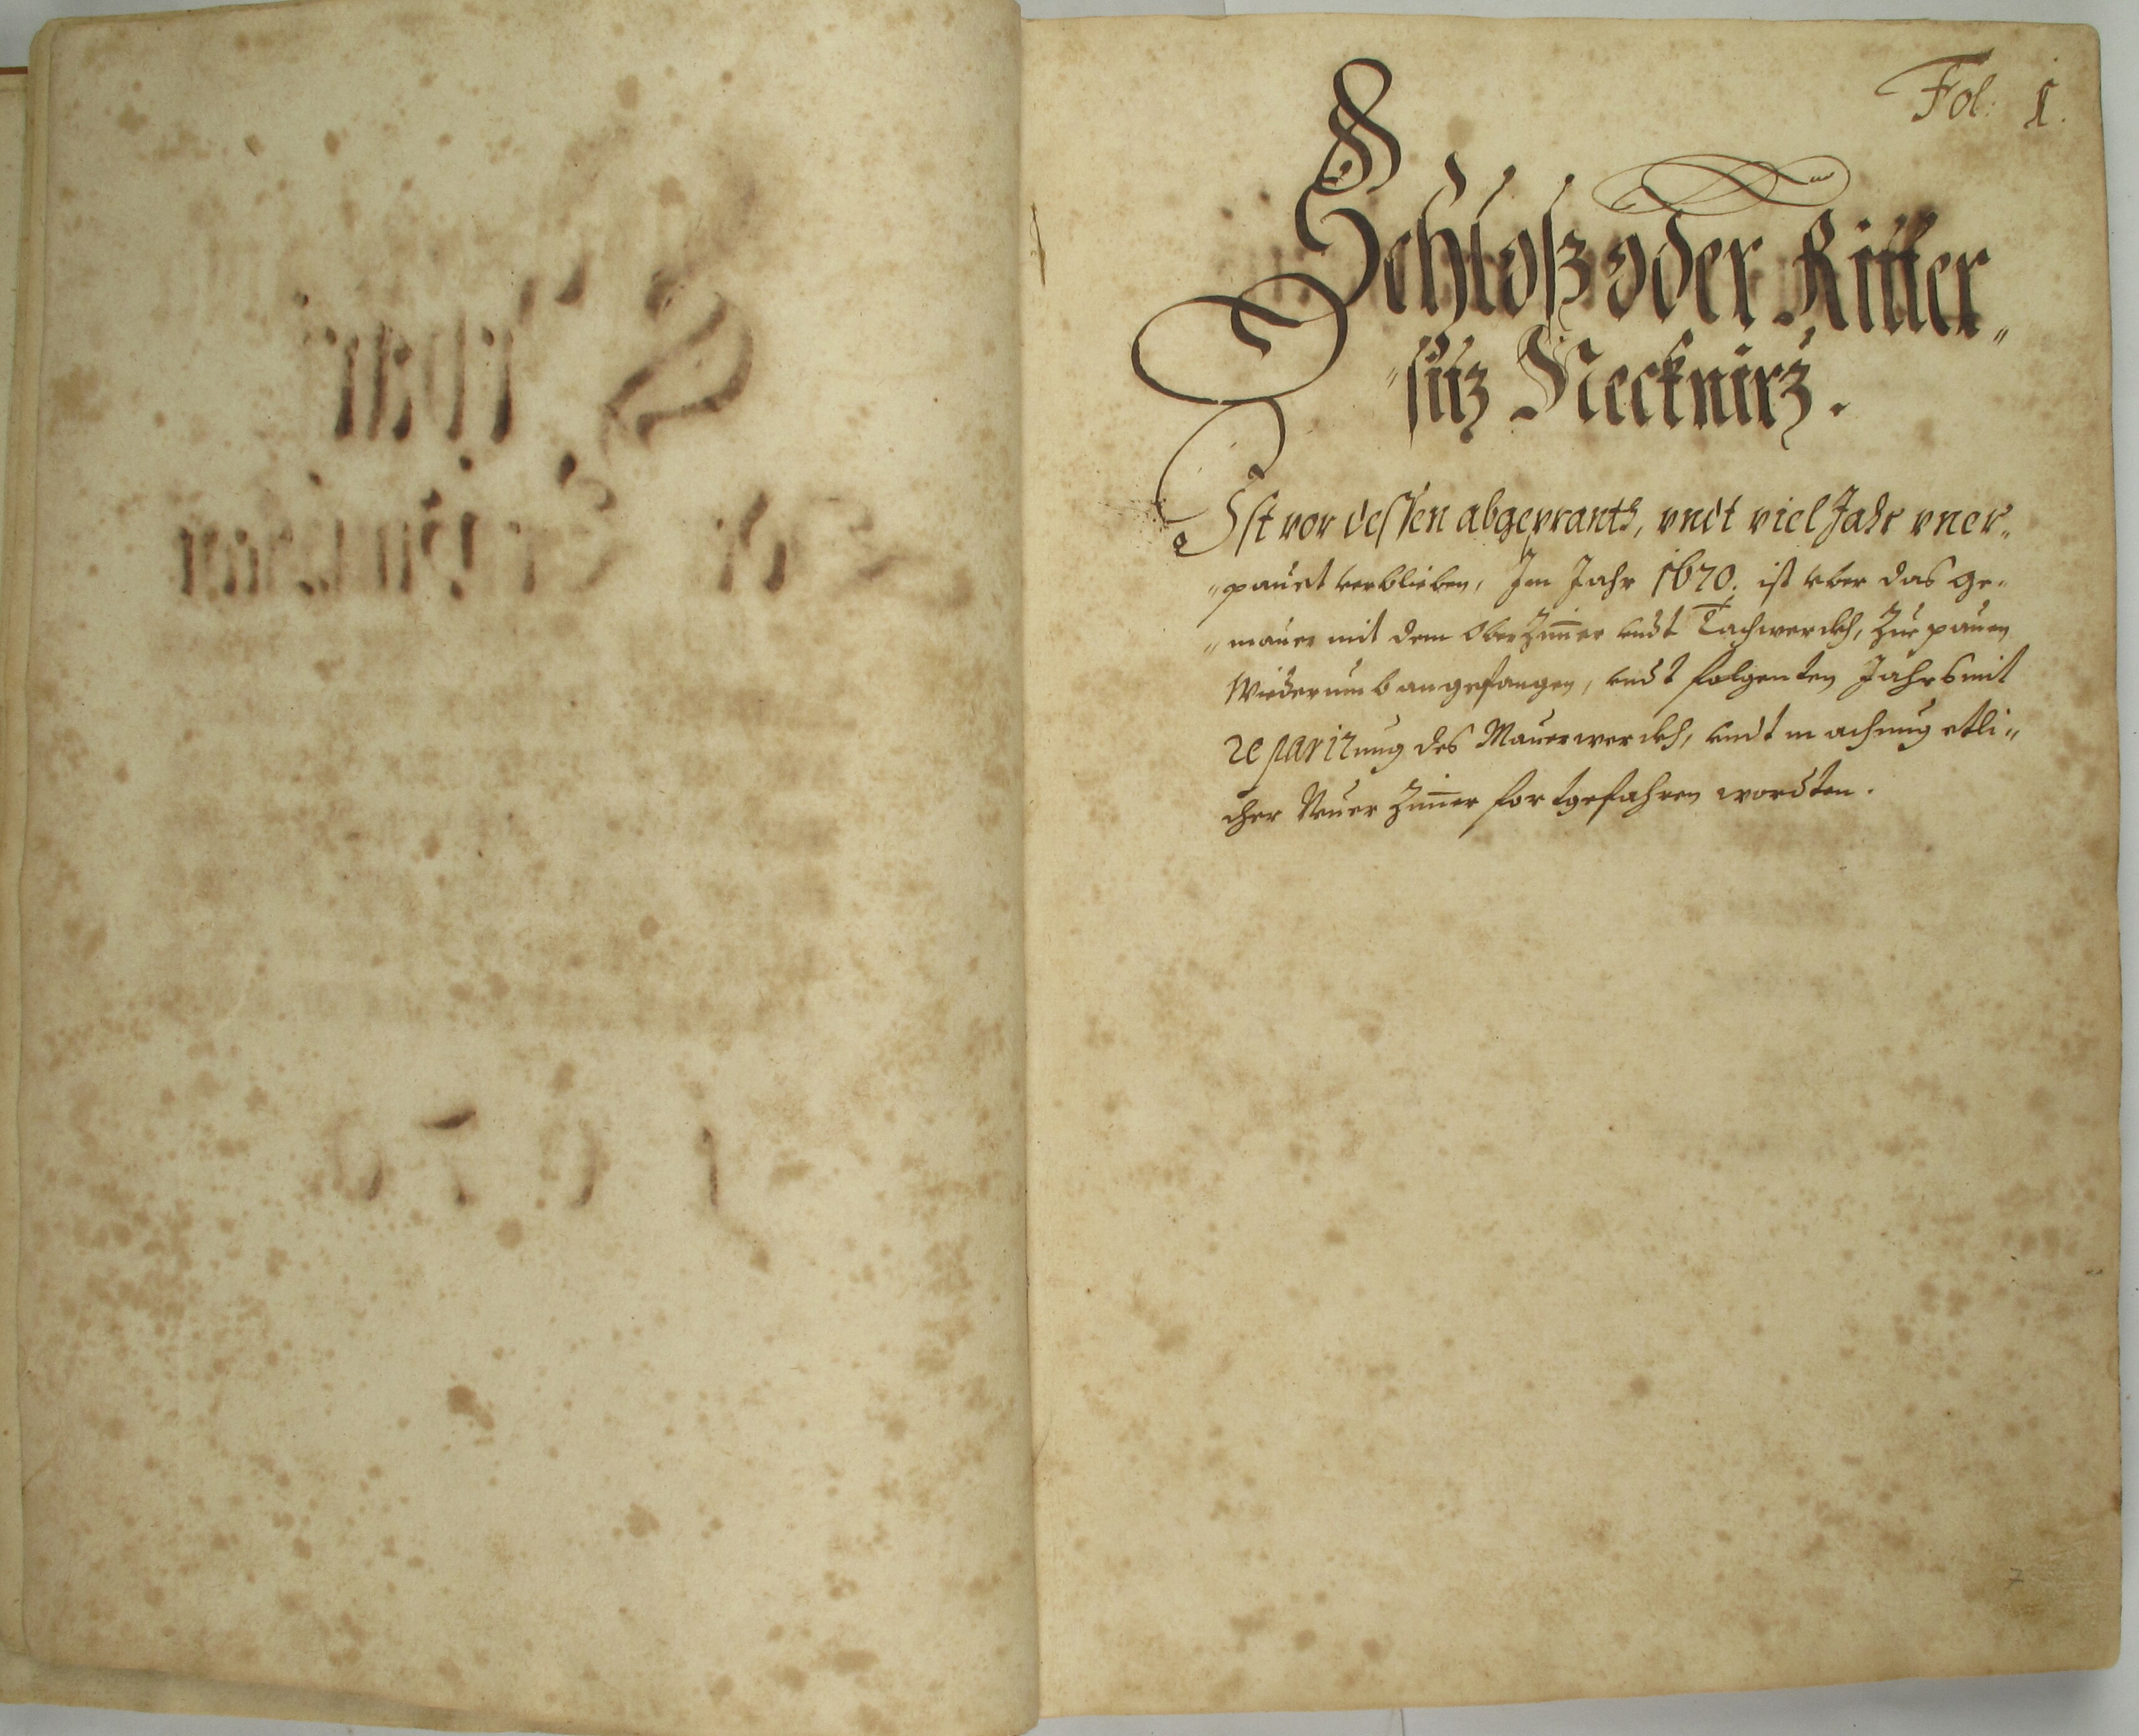 Fol: 1.
Schloß oder Ritter„
„sitz Necknirz.
Ist vor dessen abgeprandt, vndt viel Jahr vner„
„pauet verblieben, Im Jahr 1670. ist vber das ge„
„mauer mit dem Ober Zim̄er vndt Tachwerckh, Zue pauen
Wiederumb angefangen, vndt folgenten Jahrs mit
reparirung des Mauerwerckh, vndt machung etli„
cher Neuer Zim̄er fortgefahren wordten.
7